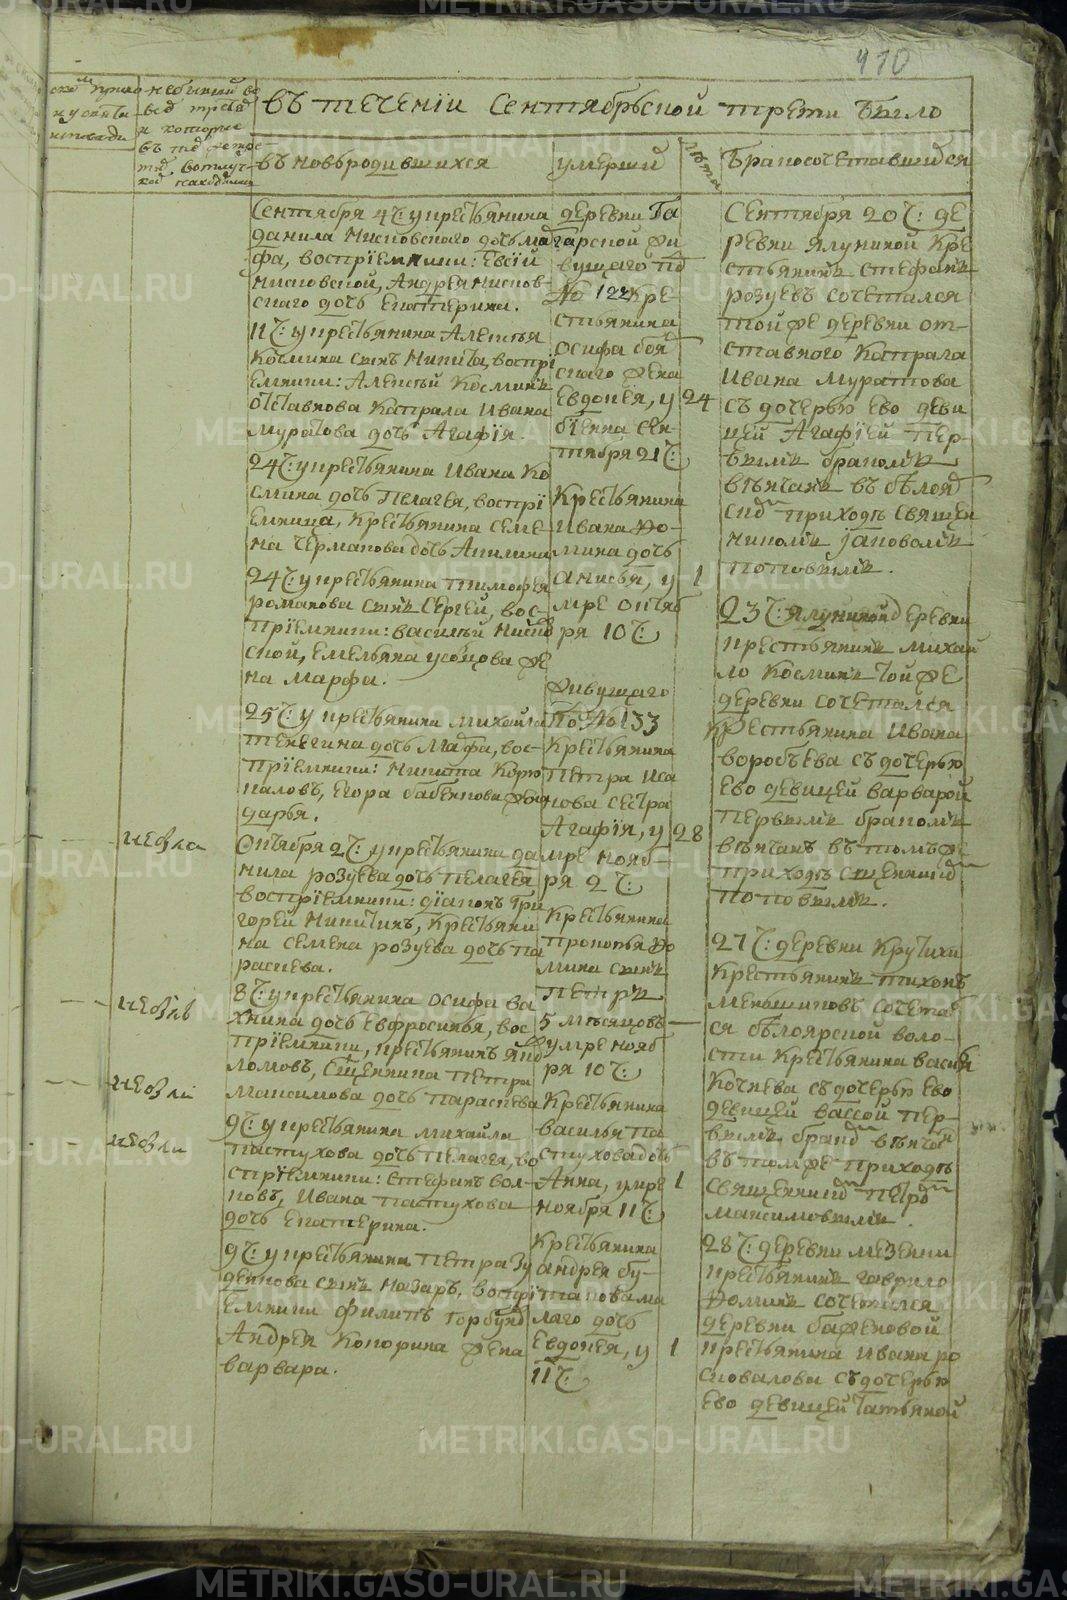 410
въ теченіи Сентябрьской трети было
въ новородившихся
умерший
лѣта
бракосочетавшихся
Сентября 4 ч: у крестьянина
Данила Мисновскаго дочь Ма
фа, воспріемники: Евсій
Мисновской, Андрея Миснов-
скаго дочь Екатерина.
11 ч: у крестьянина Алексѣя
Космина сынъ Никита, воспрі
емники: Алексѣй Косминъ
отставнова капрала Ивана
Муратова дочь Агафія.
24 ч: у крестьянина Ивана Ко
смина дочь Пелагея, воспрі
емница, крестьянина Семе-
на Чермакова дочь Акилина
24 ч: у крестьянина Тимофея
Романова сынъ Сергей, вос-
пріемники: Василѣй Мисно
ской, Емельяна Усолцова же
на Марфа.
25 ч: у крестьянина Михайла
дочь Мафа, вос-
пріемники: Никита Корю
каловъ, Егора Бабенкова жена
Дарья.
Октября 2 ч: у крестьянина Да
нила Розуева дочь Пелагея
воспріемники: діаконъ Гри
горей Никитинъ, крестьяни
на Семена Розуева дочь Па
раскева.
8 ч: у крестьянина Осифа Ва
хнина дочь Евфросинья, вос
пріемники, крестьянинъ
ломовъ, Сщенника Петра
Максимова дочь Параскева
9 ч: у крестьянина Михайла
Пастухова дочь Пелагея, во
спріемники: Стефанъ Вол-
ковъ, Ивана Пастухова
дочь Екатерина.
9 ч: у крестьянина Петра Зу
денкова сынъ Назаръ, воспрі
емники Филипъ Горбуно
Андрея Конорина жена
Варвара.
деревни Га
гарской жи
вущаго по
No 122 кре-
стьянина
Осифа Бояр
скаго жена
Евдокея, у 24
біенна Сен-
тября 21 ч:
Крестьянина
Ивана До-
мина дочь
Анисья, у 1
мре октяб
ря 10 ч:
живущаго
по No 133
крестьянина
Петра Иса
кова сестра
Агафія, у 28
мре нояб-
ря 2 ч:
Крестьянина
Прокопья До
мина сынъ
Петръ
5 мѣсяцовъ —
умре нояб
ря 10 ч:
Крестьянина
Василья Па
стухова дочь
Анна, умре 1
ноября 11 ч:
Крестьянина
Андрея Бу-
такова ма
лаго дочь
Евдокея, у 1
11 ч:
Сентября 20 ч: де
ревни Ялуниной кре
стьянинъ Стефанъ
Розуевъ сочетался
той же деревни от-
ставного капрала
Ивана Муратова
съ дочерью ево деви
цей Агафіей пер-
вымъ бракомъ
вѣнчанъ въ Бѣлояр
ском приходѣ священ
никомъ Іаковомъ
Поповымъ.
23 ч: Ялуниной деревни
крестьянинъ Михай
ло Косминъ той же
деревни сочетался
крестьянина Ивана
Воробьева съ дочерью
ево девицей Варварой
первымъ бракомъ
вѣнчанъ въ томъ же
приходѣ священником
Поповымъ.
27 ч: деревни Крутихи
крестьянинъ Тихонъ
Меньшиковъ сочетал
ся Бѣлоярской воло-
сти крестьянина Василя
Кочнева съ дочерью ево
девицей Вассой пер-
вымъ браком вѣнчан
въ том же приходѣ
священником Петром
Максимовымъ.
28 ч: деревни Мезенки
крестьянинъ Гаврило
Доминъ сочетался
деревни Баженовой
крестьянина Ивана Ро
сковалова съ дочерью
ево девицей Татьяной